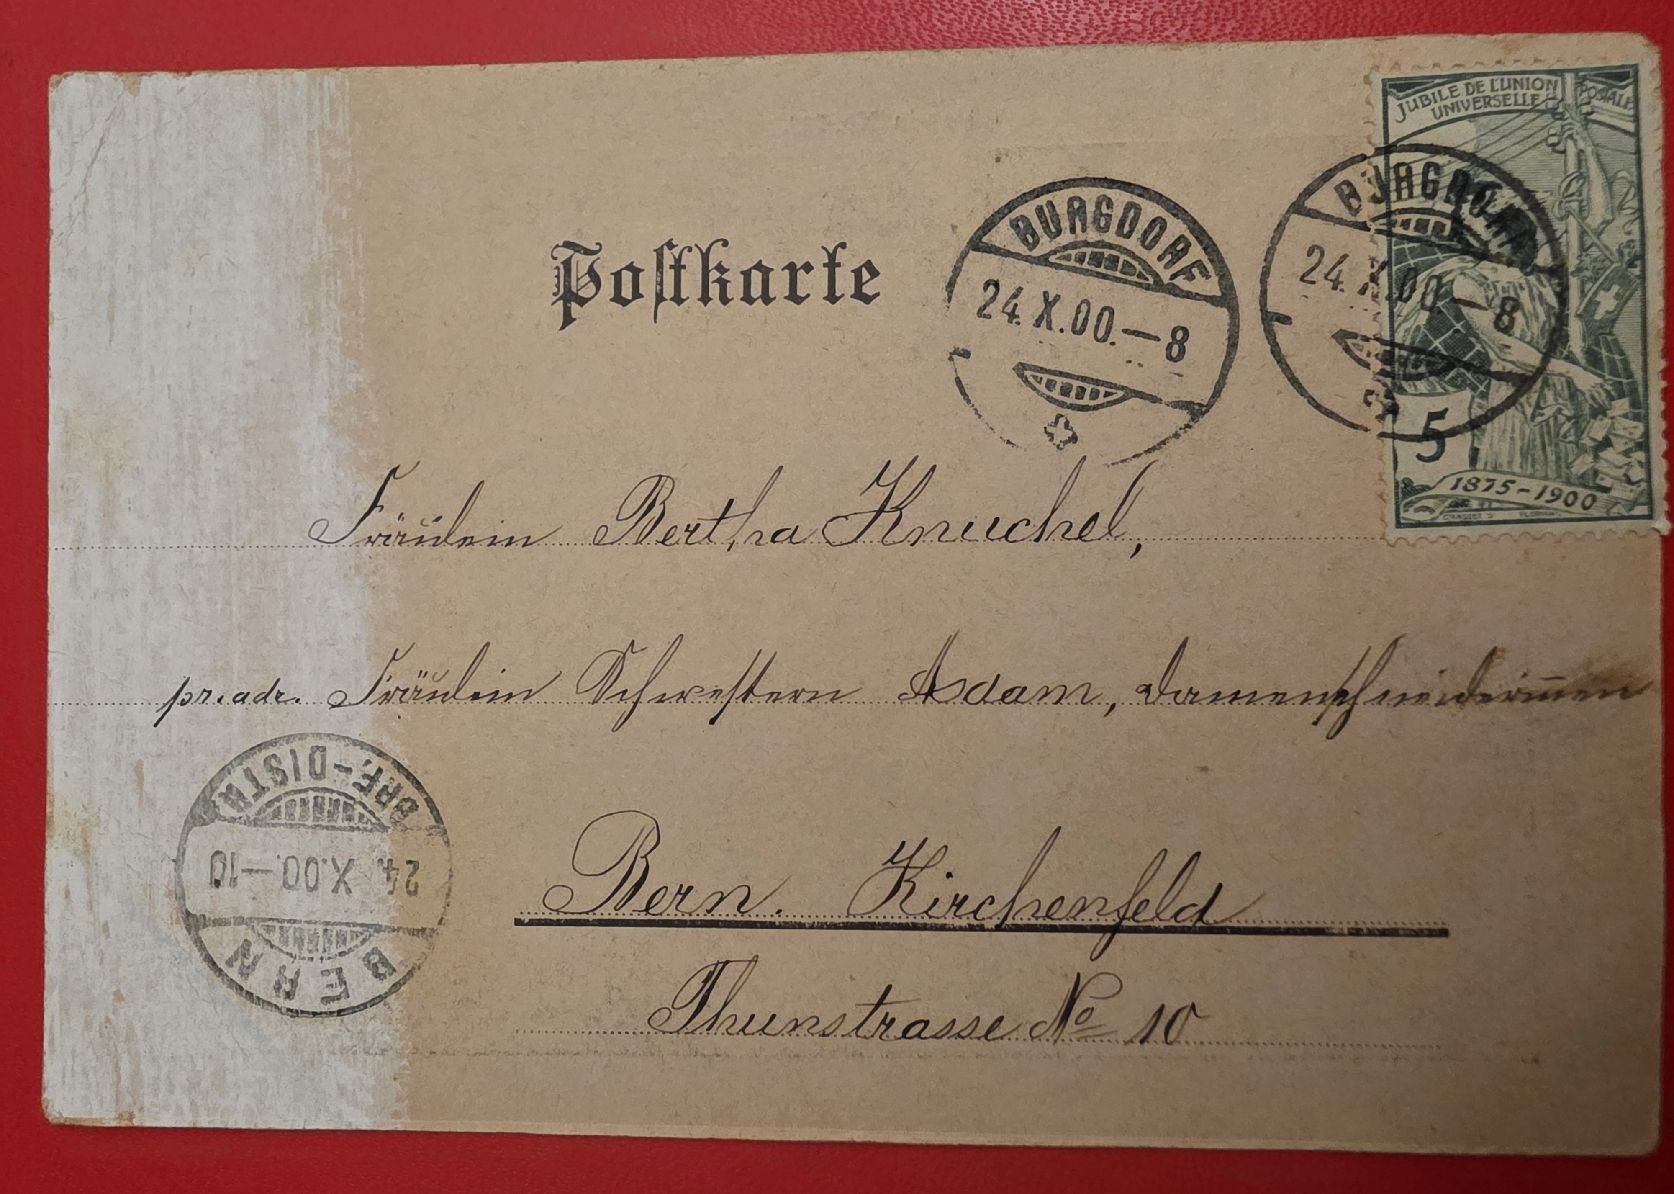 JUBILE DE L'UNION POSTALE
UNIVERSELLE
Postkarte
BURGDORF
24.X.00.–8
BURGDORF
24.X.00–8
5
1875–1900
Fräulein Bertha Knuchel,
pr. adr. Fräulein Schwestern Adam, Damenschneiderinnen
BRF.–DISTR.
24.X.00.–10
BERN
Bern. Kirchenfeld
Thunstrasse No 10